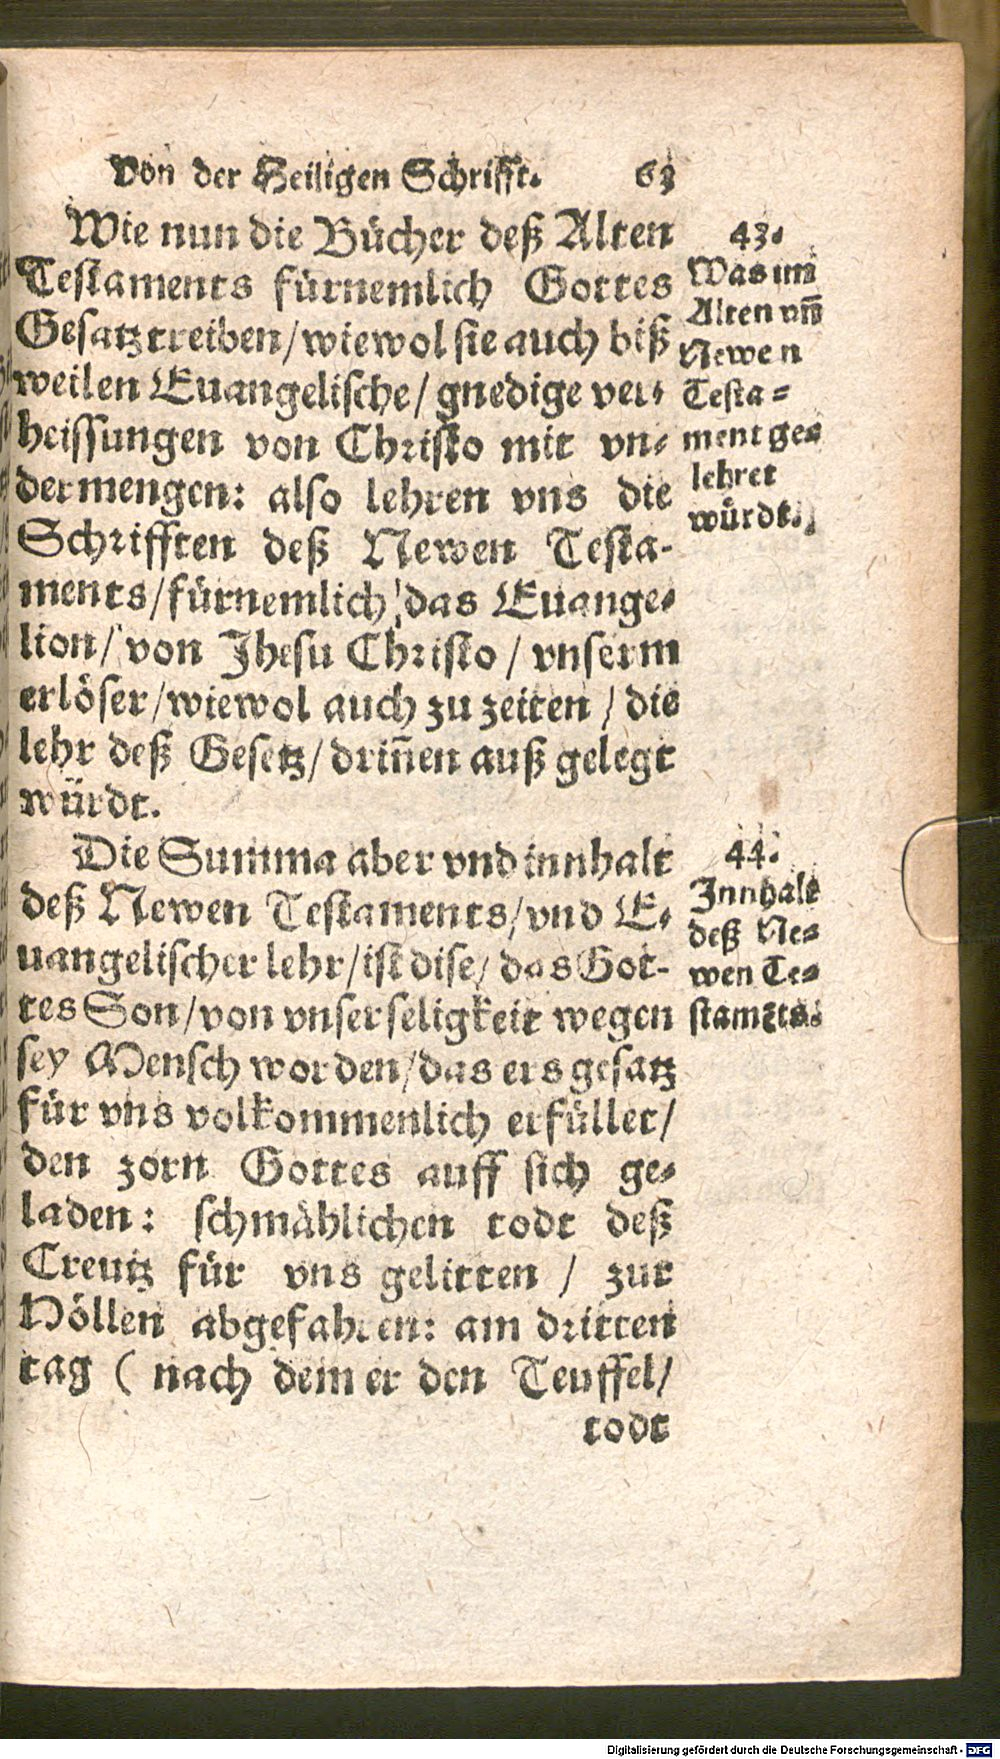 Von der Heiligen Schrifft. 63
Wie nun die Bücher deß Alten
Testaments fürnemlich Gottes
Gesatz treiben/wiewol sie auch biß
weilen Euangelische/gnedige ver-
heissungen von Christo mit vn-
dermengen: also lehren vns die
Schrifften deß Newen Testa-
ments/fürnemlich das Euange-
lion/von Jhesu Christo/vnserm
erlöser/wiewol auch zu zeiten/die
lehr deß Gesetz/driñen auß gelegt
würdt.
43.
Was im
Alten vñ
Newen
Testa-
ment ge-
lehret
würdt.
Die Summa aber vnd innhalt
deß Newen Testaments/vnd E-
uangelischer lehr/ist dise/das Got-
tes Son/von vnser seligkeit wegen
sey Mensch worden/das ers gesatz
für vns volkommenlich erfüllet/
den zorn Gottes auff sich ge-
laden: schmählichen todt deß
Creutz für vns gelitten / zur
Höllen abgefahren: am dritten
tag ( nach dem er den Teuffel/
44.
Innhalt
deß Ne-
wen Te-
stamẽts.
todt
Digitalisierung gefördert durch die Deutsche Forschungsgemeinschaft - DFG